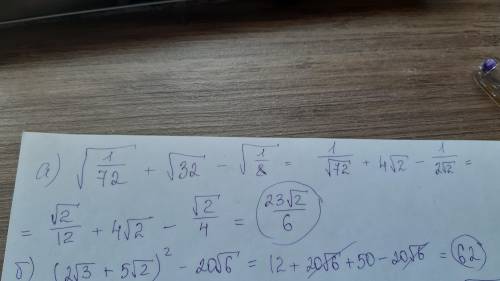 а) √(1/72) + √32 - √(1/8) = 1/√72 + 4√2 - 1/(2√2) =
= √2/12 + 4√2 - √2/4 = 23√2/6
б) (2√3 + 5√2)² - 20√6 = 12 + 20√6 + 50 - 20√6 = 62